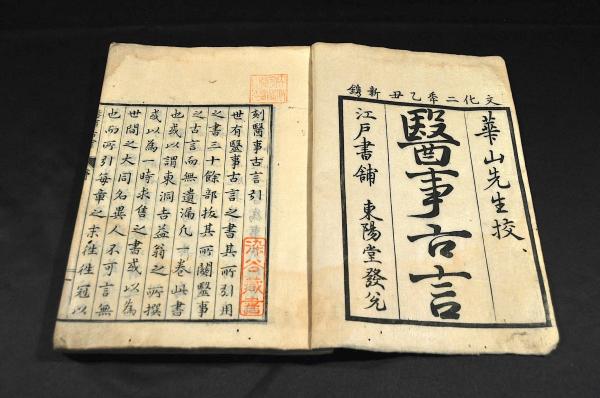 文化二年乙丑新鐫
華山先生校
醫事古言
江戶書舖 東陽堂發兌
刻醫事古言引
世有醫事古言之書其所引用
之書三十餘部拔其所關醫事
之古言而無遺漏凡一卷此書
也或以謂東洞吉益翁之所撰
或以為一時求售之書或以為
世間之大同名異人不可言無
也而所引每章之末往往冠以